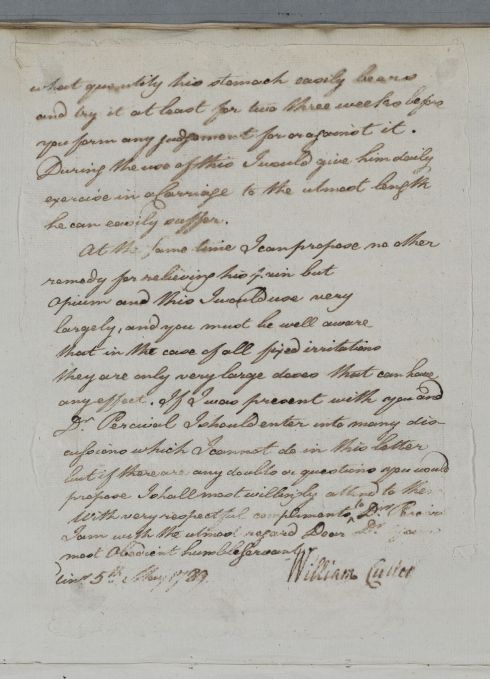 what quantity his stomach easily bears
and try it at least for two three weeks before
you form any judgement for or against it.
During the use of this I would give him daily
exercise in a Carriage to the utmost length
he can easily suffer.
At the same time I can propose no other
remedy for relieving his pain but
Opium and this I would use very
largely, and you must be well aware
that in the case of all fixed irritations
they are only very large doses that can have
any effect. If I was present with you and
Dr Percival I should enter into many dis-
cussions which I cannot do in this letter
but if there are any doubts or questions you would
propose I shall most willingly attend to them
With very respectful compliments to Dr Percival
I am with the utmost regard Dear Dr your
most Obedient humble Servant
Edinr 5th May 1789 William Cullen